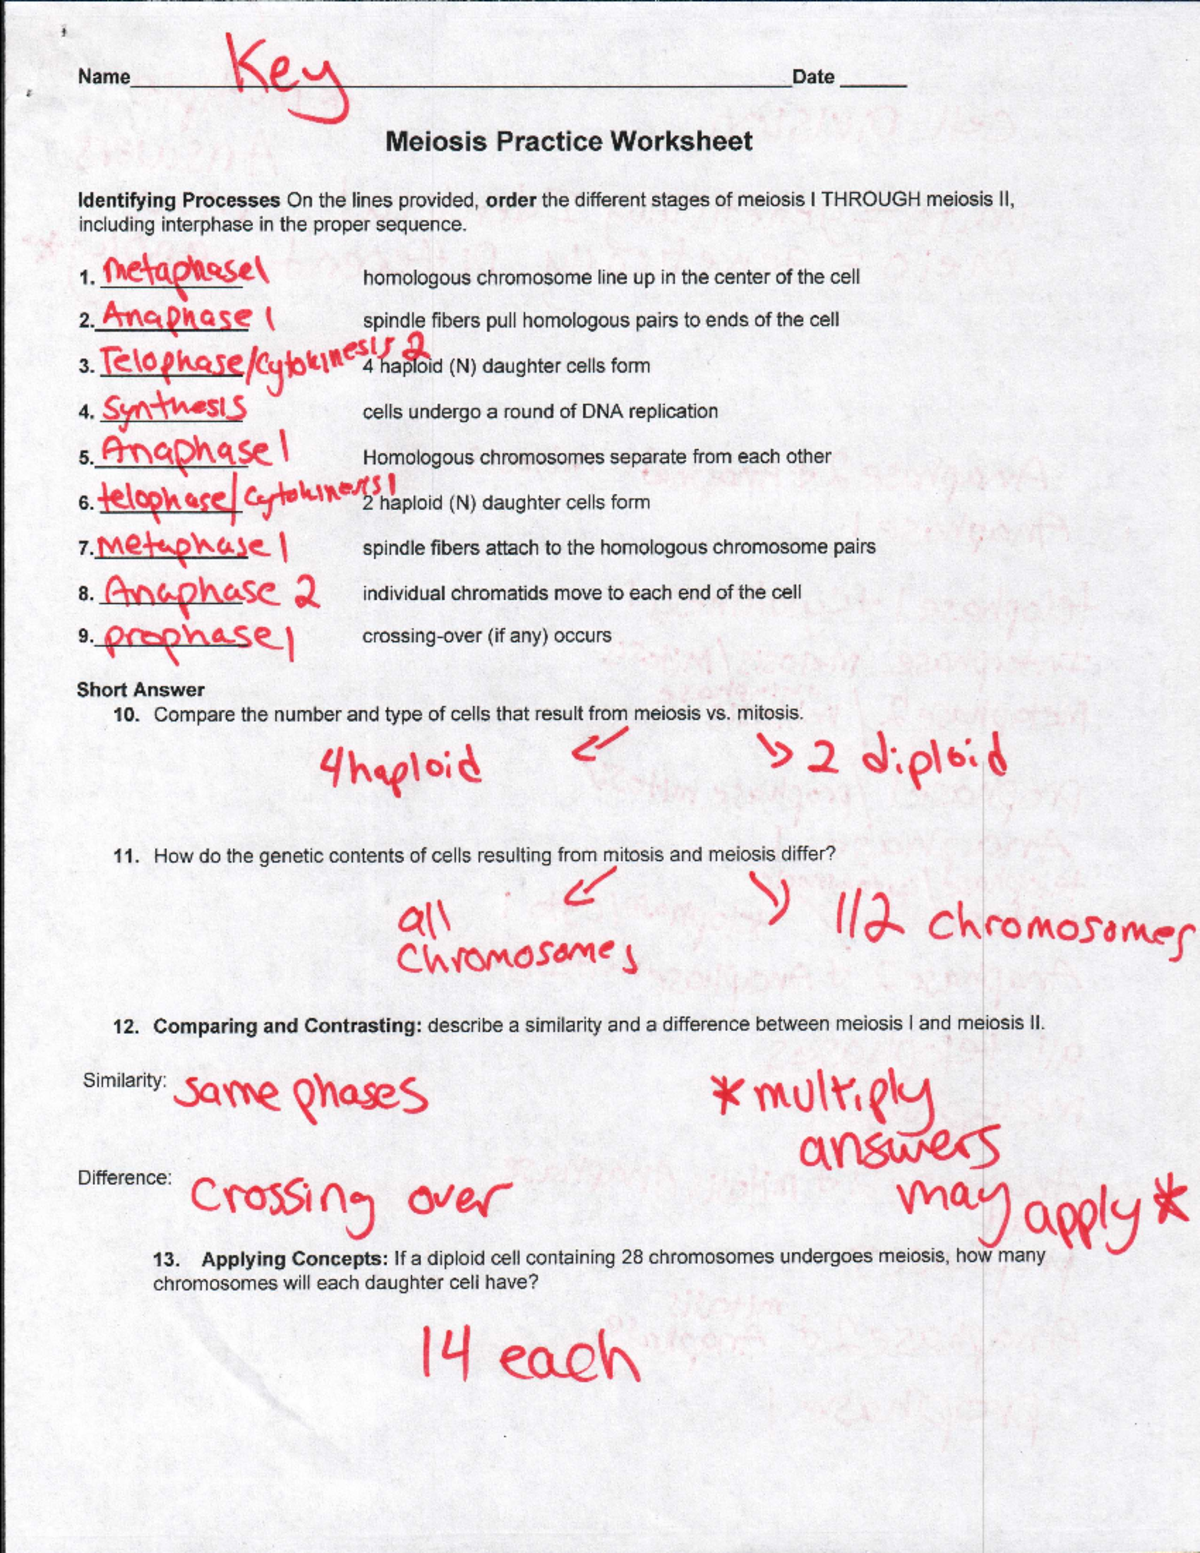 Name Key Date
Meiosis Practice Worksheet
Identifying Processes On the lines provided, order the different stages of meiosis I THROUGH meiosis II,
including interphase in the proper sequence.
1. metaphase1 homologous chromosome line up in the center of the cell
2. Anaphase 1 spindle fibers pull homologous pairs to ends of the cell
3. Telophase/Cytokinesis 2 4 haploid (N) daughter cells form
4. Synthesis cells undergo a round of DNA replication
5. Anaphase 1 Homologous chromosomes separate from each other
6. telophase/cytokinesis 1 2 haploid (N) daughter cells form
7. metaphase 1 spindle fibers attach to the homologous chromosome pairs
8. Anaphase 2 individual chromatids move to each end of the cell
9. prophase 1 crossing-over (if any) occurs
Short Answer
10. Compare the number and type of cells that result from meiosis vs. mitosis.
4 haploid 2 diploid
11. How do the genetic contents of cells resulting from mitosis and meiosis differ?
all 1/2 chromosomes
chromosomes
12. Comparing and Contrasting: describe a similarity and a difference between meiosis I and meiosis II.
Similarity: same phases *multiply
answers
Difference: crossing over may apply*
13. Applying Concepts: If a diploid cell containing 28 chromosomes undergoes meiosis, how many
chromosomes will each daughter cell have?
14 each